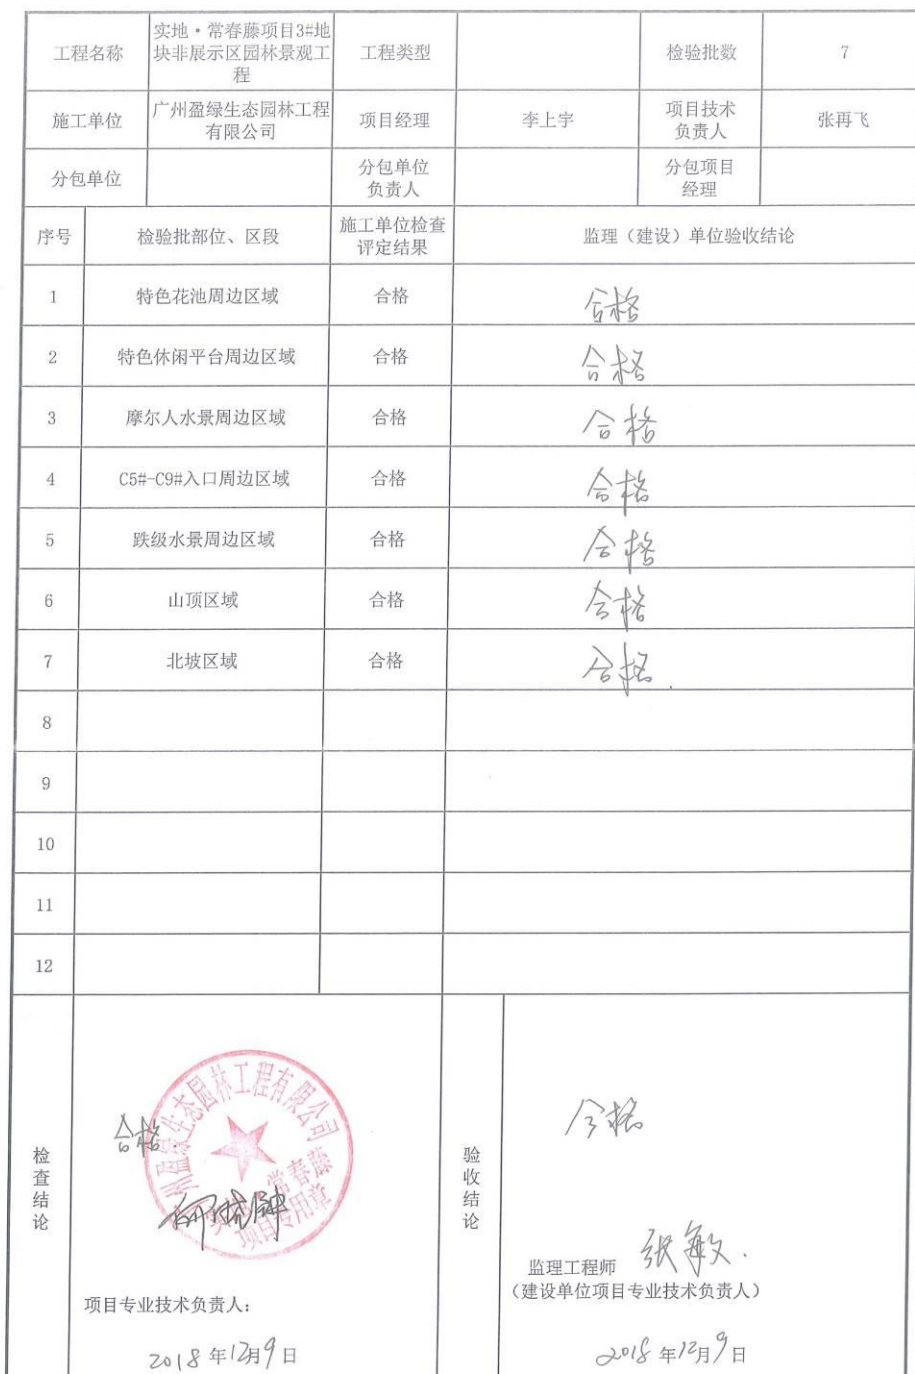 工程名称
实地·常春藤项目3#地
块非展示区园林景观工
程
工程类型
检验批数
7
施工单位
广州盈绿生态园林工程
有限公司
项目经理
李上宇
项目技术
负责人
张再飞
分包单位
分包单位
负责人
分包项目
经理
序号
检验批部位、区段
施工单位检查
评定结果
监理（建设）单位验收结论
1
特色花池周边区域
合格
合格
2
特色休闲平台周边区域
合格
合格
3
摩尔人水景周边区域
合格
合格
4
C5#-C9#入口周边区域
合格
合格
5
跌级水景周边区域
合格
合格
6
山顶区域
合格
合格
7
北坡区域
合格
合格
8
9
10
11
12
检查结论
合格
州盈绿生态园林工程有限公司
常春藤
项目专用章
项目专业技术负责人：
2018年12月9日
验收结论
合格
监理工程师 张敏
（建设单位项目专业技术负责人）
2018年12月9日